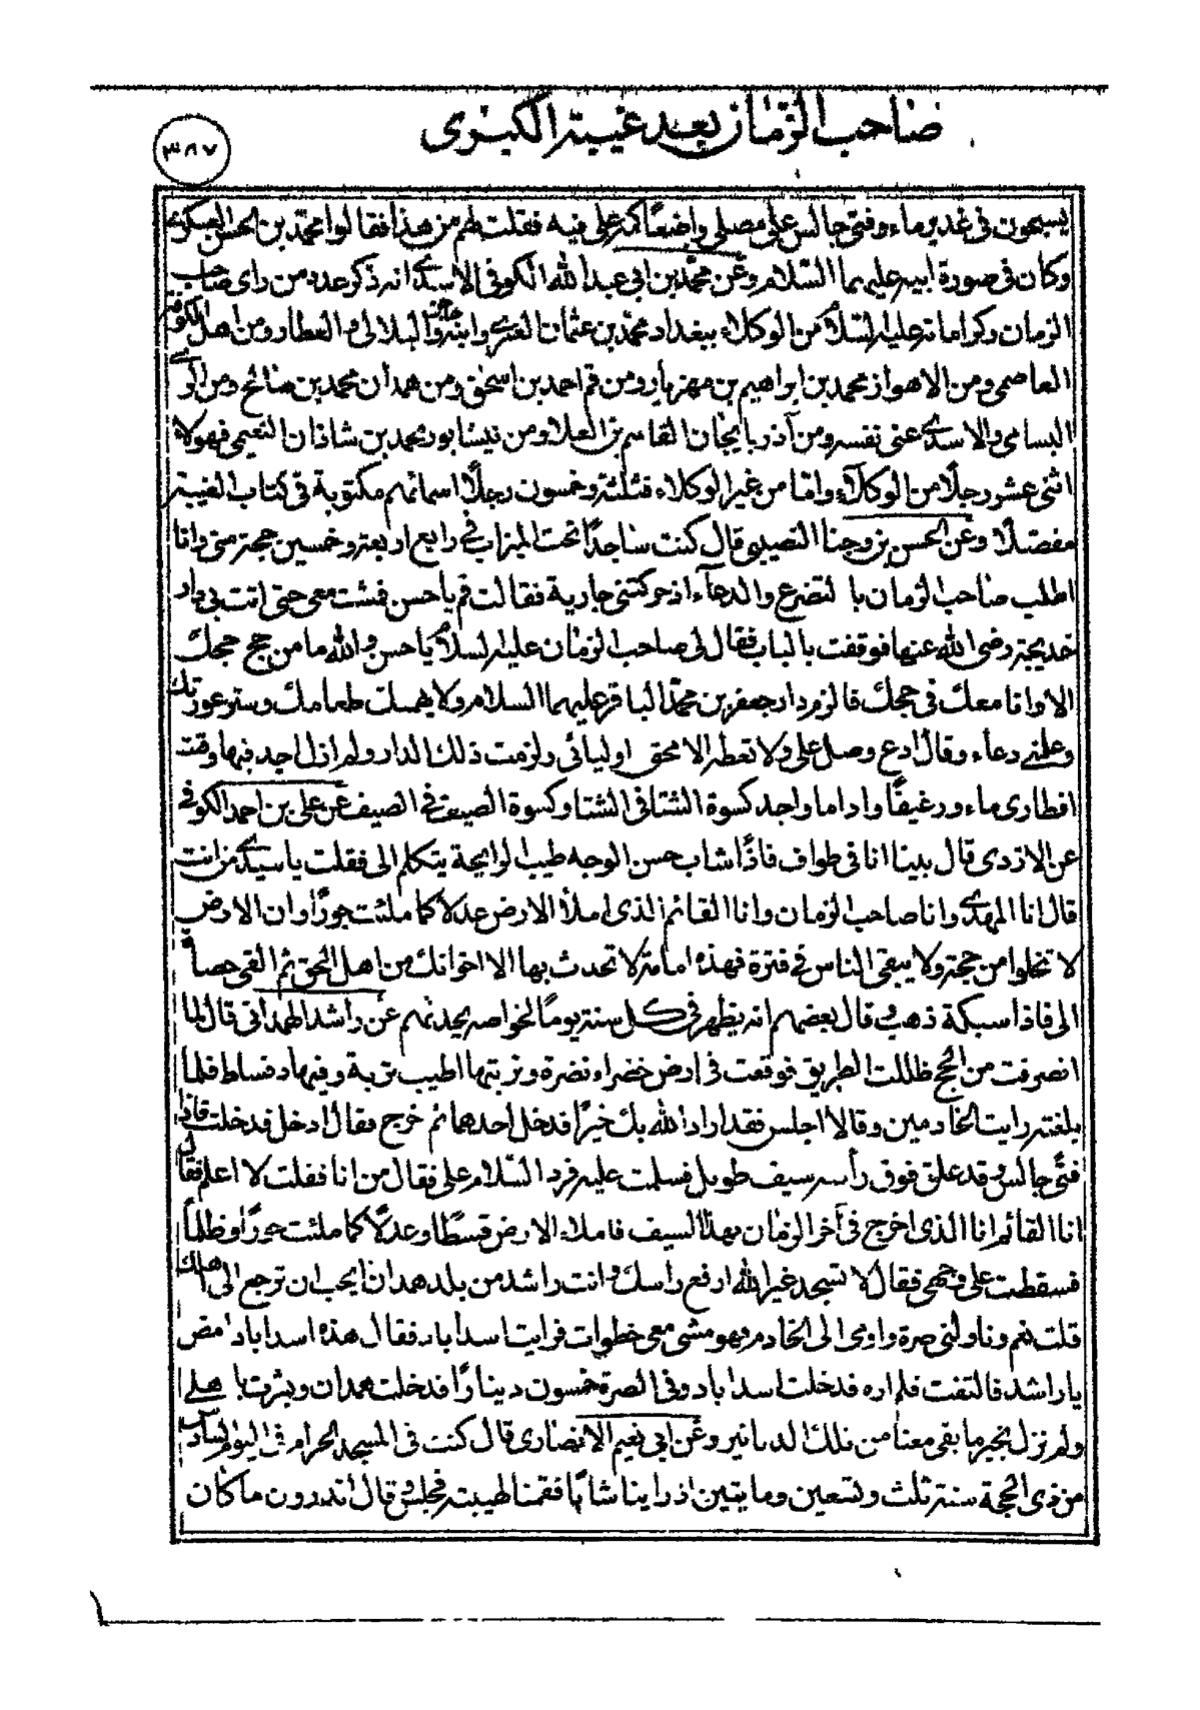 صاحب الزمان بعد غيبته الكبرى
٣٨٧
يسبحون فى غدير ماء وفتى جالس على مصلى واضعا كمه على فيه فقلت لهم من هذا فقالوا محمّد بن الحسن العسكرى
وكان فى صورة ابيه عليهما السّلام وعن محمّد بن ابى عبد الله الكوفى الاسدى انه ذكر عدد من راى صاحب
الزمان وكراماته عليه السّلام من الوكلاء ببغداد محمّد بن عثمان العمرى وابنه وحاجز والبلالى والعطار ومن اهل الكوفة
العاصمى ومن الاهواز محمد بن ابراهيم بن مهزيار ومن قم احمد بن اسحق ومن همدان محمد بن صالح ومن الرى
البسامى والاسدى عنى نفسه ومن آذربايجان القاسم بن العلا ومن نيسابور محمد بن شاذان النعيمى فهولاء
اثنى عشر رجلًا من الوكلاء واما من غير الوكلاء فثلثة وخمسون رجلًا اسمائهم مكتوبة فى كتاب الغيبة
مفصّلًا وعن الحسن بن وجنا النصيبى قال كنت ساجدًا تحت الميزاب فى رابع اربعة وخمسين حجة منى وانا
اطلب صاحب الزمان بالتضرع والدعاء اذ حركتنى جارية فقالت قم يا حسن فمشت معى حتى اتت بى دار
خديجة رضى الله عنها فوقفت بالباب فقال لى صاحب الزمان عليه السلام يا حسن والله ما من حج حججك
الا وانا معك فى حجك فالزم دار جعفر بن محمّد الباقر عليهما السلام ولا يهمك طعامك وستر عورتك
وعلمنى دعاء وقال ادع وصل على ولا تعطه الا محق اوليائى ولزمت ذلك الدار ولم ازل اجد فيها وقت
افطارى ماء ورغيفًا واداما واجد كسوة الشتا فى الشتا وكسوة الصيف فى الصيف عن على بن احمد الكوفى
عن الازدى قال بينا انا فى طواف فاذًا شاب حسن الوجه طيب الرايحة يتكلم الى فقلت يا سيدى من انت
قال انا المهدى وانا صاحب الزمان وانا القائم الذى املأ الارض عدلا كما ملئت جورًا وان الارض
لا تخلوا من حجة ولا يبقى الناس فى فترة فهذه امانة لا تحدث بها الا اخوانك من اهل الحق ثم القى حصاً
الى فاذا سبكة ذهب وقال بعضهم انه يظهر فى كل سنة يومًا لخواصه يحدثهم عن راشد الهمدانى قال لما
انصرفت من الحج ظللت الطريق فوقعت فى ارض خضراء نضرة وتربتها اطيب تربة وفيها فسطاط فلما
بلغته رايت الخادمين وقالا اجلس فقد اراد الله بك خيرًا فدخل احدهما ثم خرج فقال ادخل فدخلت فاذا
فتًى جالس وقد علق فوق رأسه سيف طويل فسلمت عليه فرد السّلام على فقال من انا فقلت لا اعلم فقال
انا القائم انا الذى اخرج فى آخر الزمان بهذا السيف فاملاء الارض قسطًا وعدلًا كما ملئت جورًا وظلماً
فسقطت على وجهى فقال لا تسجد غير الله ارفع راسك وانت راشد من بلد همدان ايحب ان ترجع الى اهلك
قلت نعم وناولنى صرة واومى الى الخادم وهو مشى معى خطوات فرايت اسدآباد فقال هذه اسداباد امض
يا راشد فالتفت فلم اره فدخلت اسداباد وفى الصرة خمسون دينارًا فدخلت همدان وبشرت باهلى
ولم نزل بخير ما بقى معنا من تلك الدنانير وعن ابى نعيم الانصارى قال كنت فى المسجد الحرام فى اليوم السادس
من ذى الحجة سنة ثلث وتسعين ومايتين اذ راينا شابًا فقمنا لهيبته فجلس وقال اتدرون ما كان